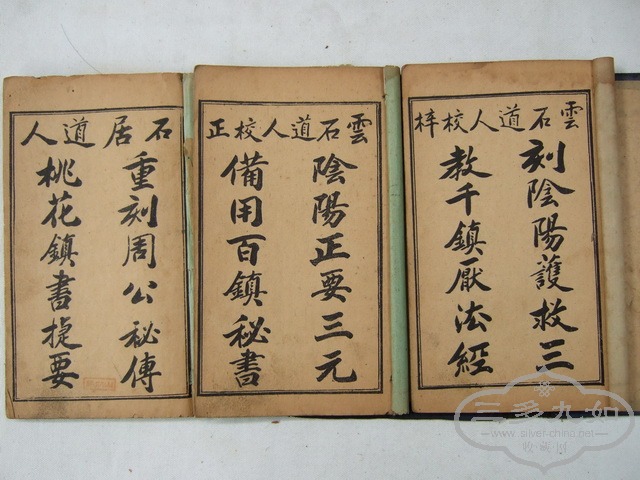 雲石道人校梓
刻陰陽護救三
教千鎮厭法經
雲石道人校正
陰陽正要三元
備用百鎮秘書
石居道人
重刻周公秘傳
桃花鎮書捷要
三多九如
www.silver-china.net